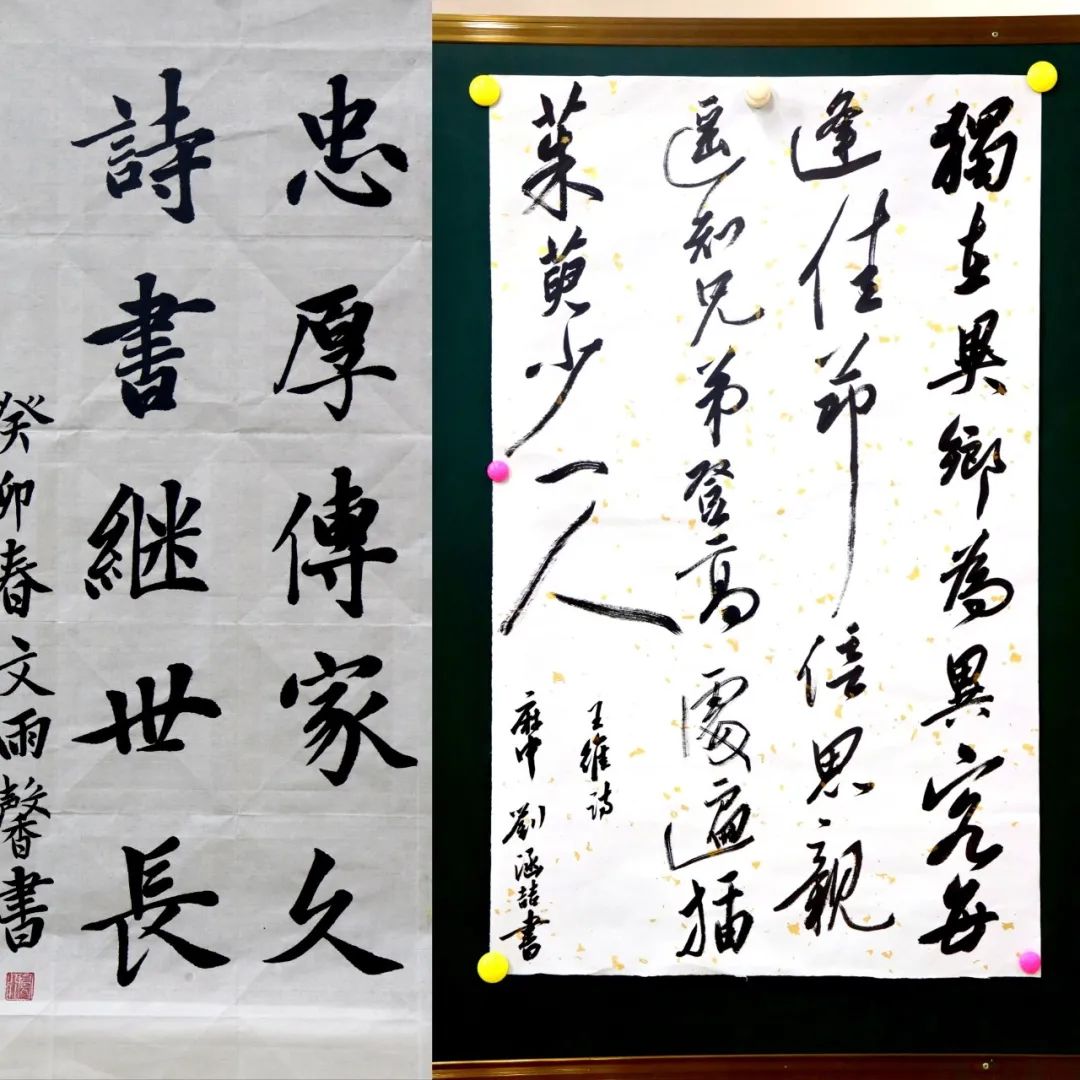 忠厚傳家久
詩書継世長
癸卯春文雨馨書
獨在異鄉為異客每
逢佳節倍思親
遥知兄弟登高處遍插
茱萸少一人
王維詩
麻中 劉涵喆書